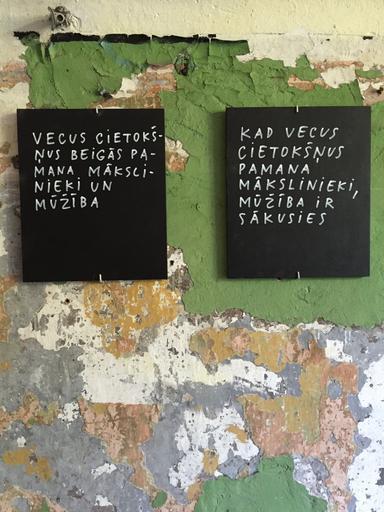 VECUS CIETOKŠ-
ŅUS BEIGĀS PA-
MANA MĀKSLI-
NIEKI UN
MŪŽĪBA
KAD VECUS
CIETOKŠŅUS
PAMANA
MĀKSLINIEKI,
MŪŽĪBA IR
SĀKUSIES